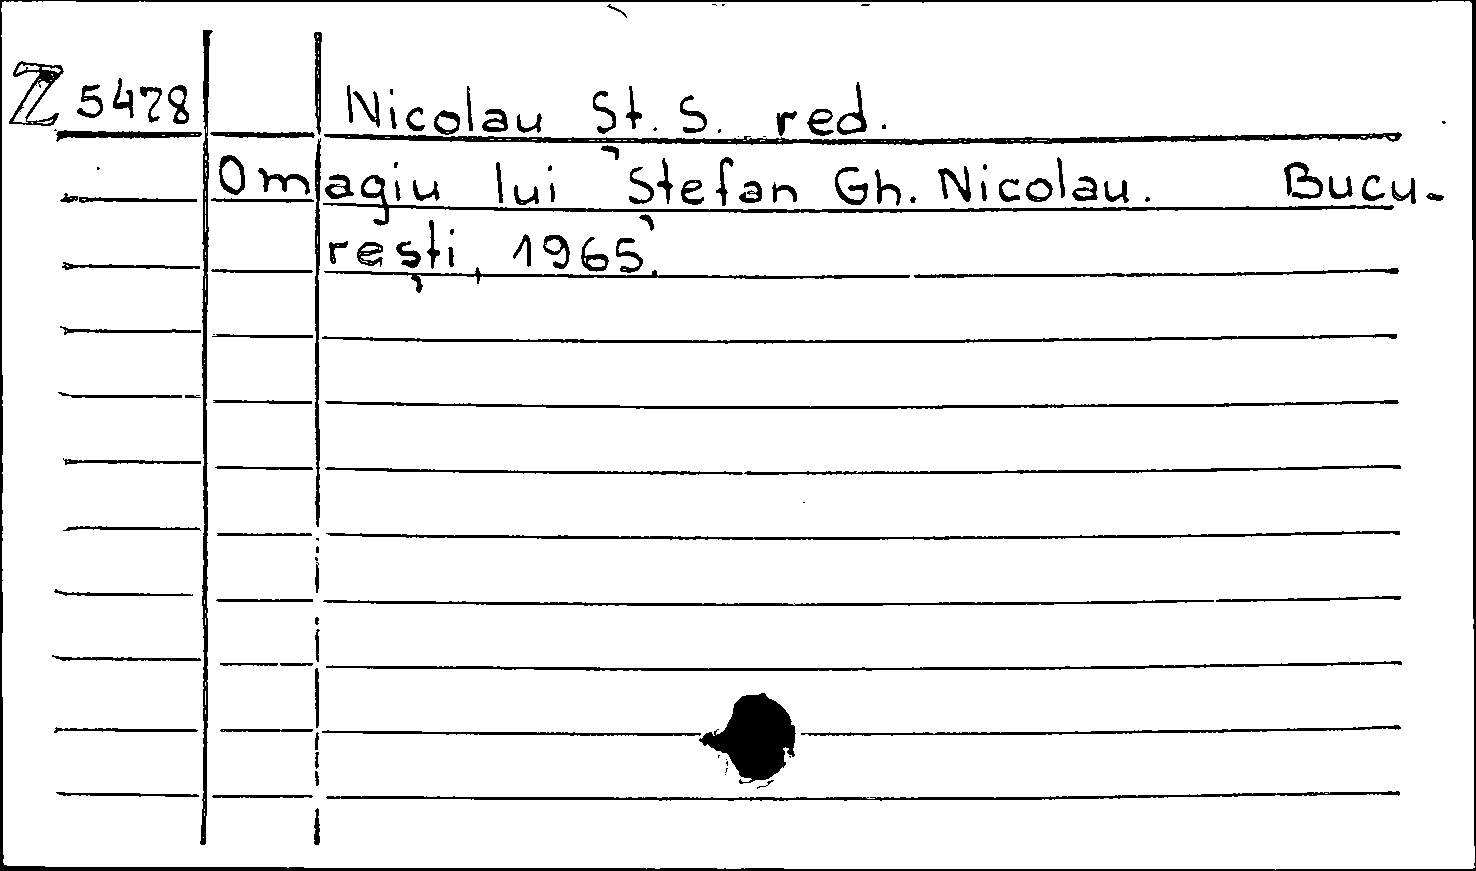 Z 5478 Nicolau Șt. S. red.
Omagiu lui Ștefan Gh. Nicolau. Bucu-
rești, 1965.